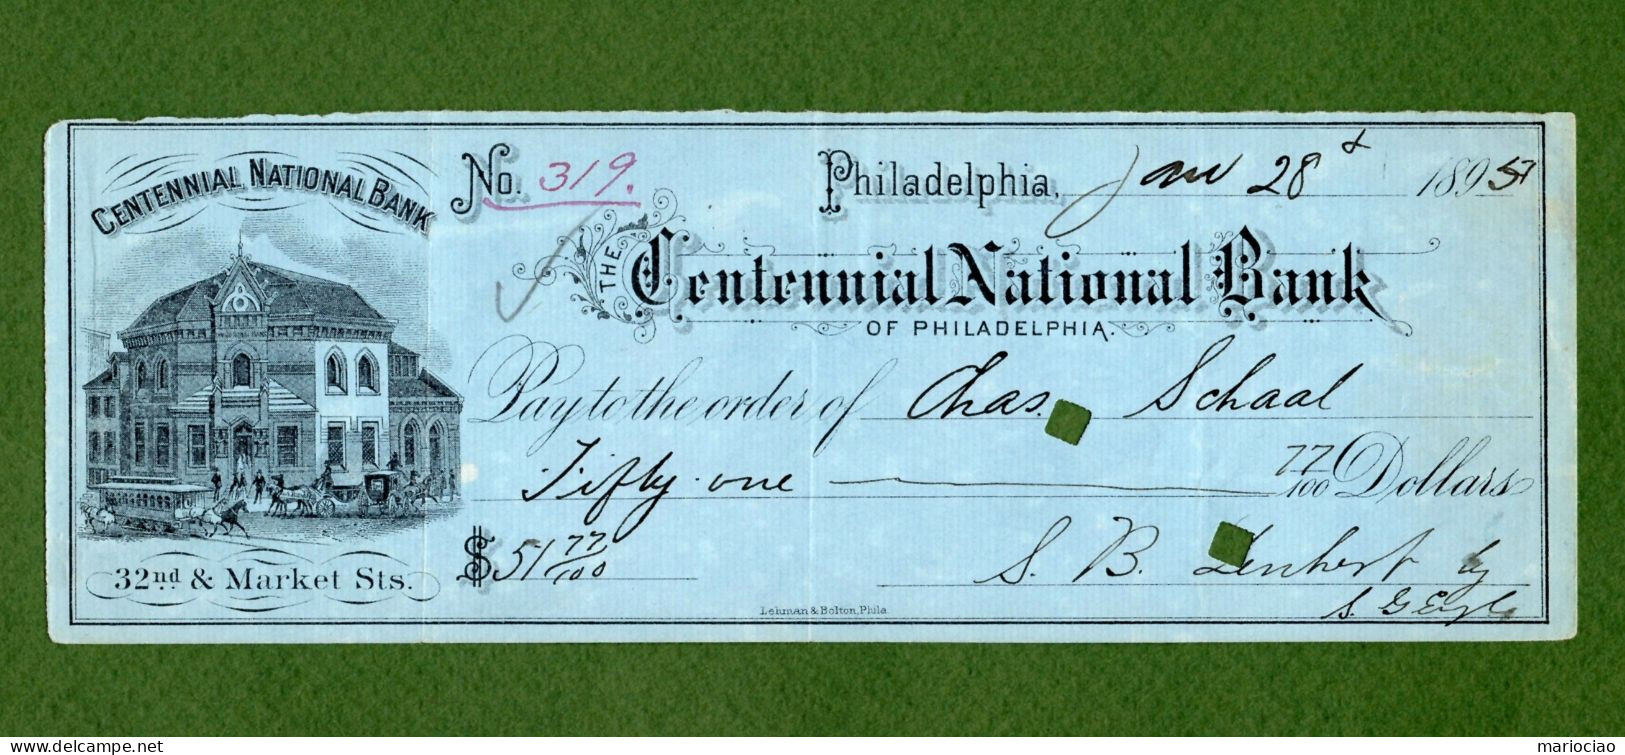 CENTENNIAL NATIONAL BANK
No. 319.
Philadelphia, Jan 28 1895
THE Centennial National Bank
OF PHILADELPHIA.
Pay to the order of Chas. Schaal
Fifty-one 77/100 Dollars
$51 77/100
S. B. Lenhert by
32nd & Market Sts.
Lehman & Bolton, Phila.
www.delcampe.net
mariociao